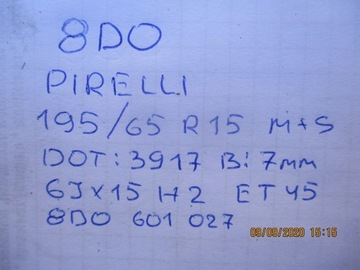 8DO
PIRELLI
195/65 R15 M+S
DOT: 3917 B: 7mm
6Jx15 H2 ET45
8DO 601 027
09/09/2020 15:15